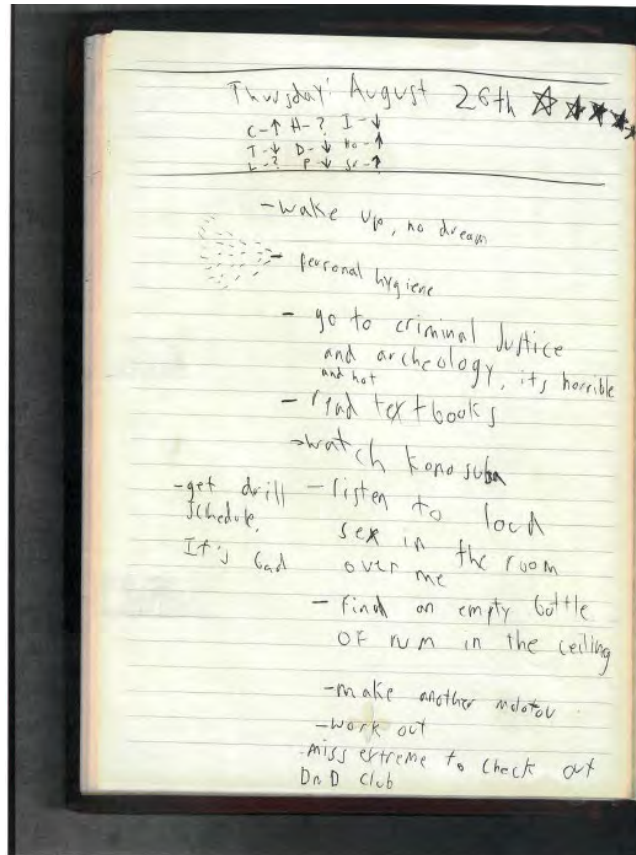 Thursday: August 26th
C-↑ H-? I-↓
T-↓ D-↓ Ho-↑
L-? P↓ Sr-↑
-wake up, no dream
- personal hygiene
- go to criminal Justice
and archeology, its horrible
and hot
- read textbooks
-watch konosuba
-get drill
schedule.
It's bad
-listen to loud
sex in the room
over me
- find an empty bottle
OF rum in the ceiling
-make another molotov
-work out
-miss extreme to check out
DnD club